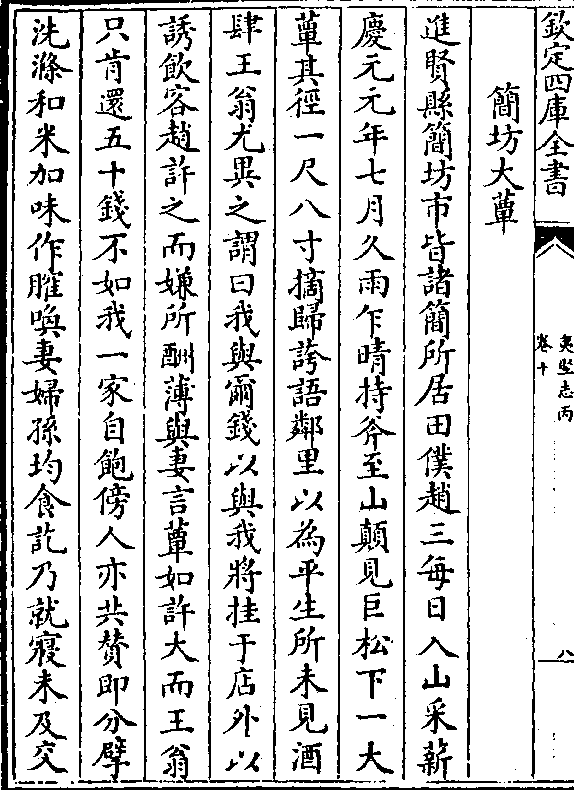 欽定四庫全書
夷堅志丙
卷十
八
簡坊大蕈
進賢縣簡坊市皆諸簡所居田僕趙三每日入山采薪
慶元元年七月久雨乍晴持斧至山顛見巨松下一大
蕈其徑一尺八寸摘歸誇語鄰里以為平生所未見酒
肆王翁尤異之謂曰我與爾錢以與我將挂于店外以
誘飲客趙許之而嫌所酬薄與妻言蕈如許大而王翁
只肯還五十錢不如我一家自飽傍人亦共贊即分擘
洗滌和米加味作臛喚妻婦孫均食訖乃就寢未及交